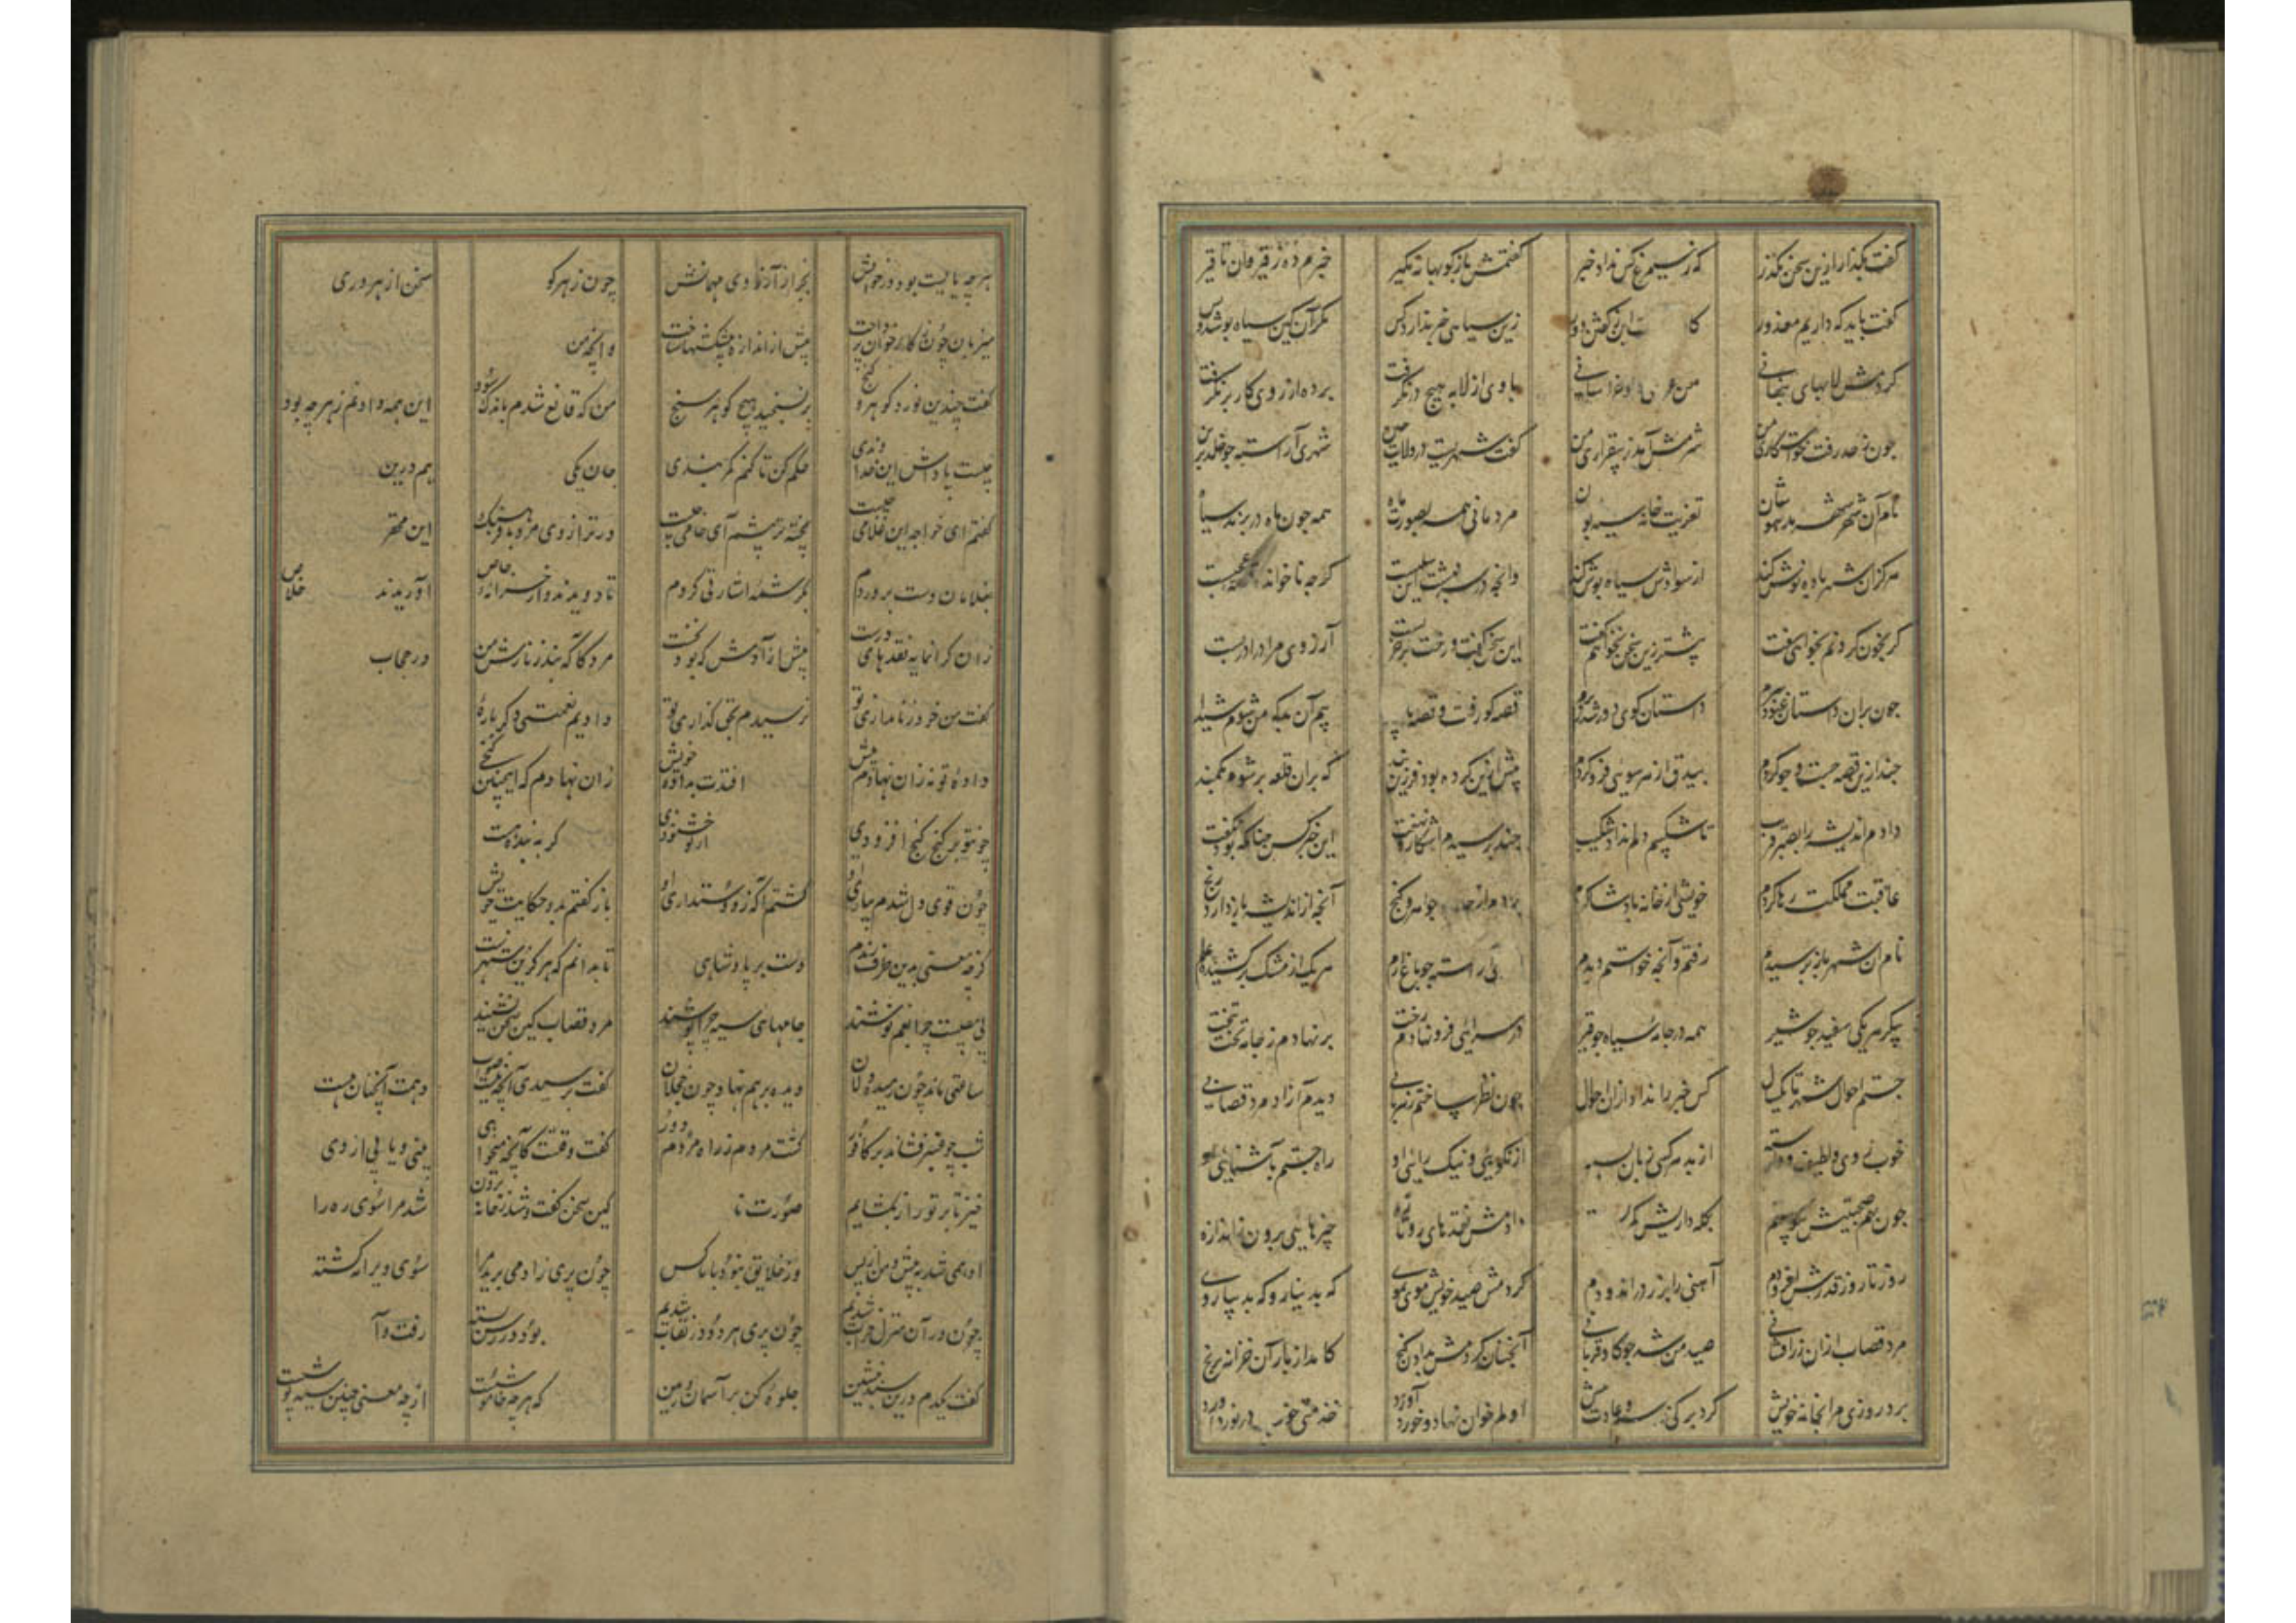 گفت بگذار ازین سخن بگذر که ز سیمرغ کس نداد خبر گفتمش بازگو بهانه مگیر خبرم ده ز قیروان تا قیر
گفت باید که داریم معذور کا زین سیاهی خبر ندارد کس مگر آن کین سیاه پوشد و بس
کردمش لابهای پنهانی من با وی از لابه هیچ در نگرفت پرده از روی کار بر نگرفت
چون ز حد رفت خواستگاری من شرمش آمد ز بیقراری من گفت شهریست در ولایت چین شهری آراسته چو خلد برین
نام آن شهر شهر مدهوشان تعزیت خانه سیه مردمانی همه بصورت ماه همه چون ماه در پرند سیاه
هرکزان شهر باده نوش کند از سوادش سیاه پوش کند وانچه در سرنبشت این سلبست گرچه ناخوانده عجبست
گر بخون گردنم بخواهی سفت بیشتر زین سخن نخواهم گفت این سخن گفت و رخت بر خر بست آرزوی مرا در در بست
چون بران داستان غنود سرم داستان گوی دور شد ز برم قصه گو رفت و قصه بیم آن بد که من شوم شیدا
چند ازین قصه جست و جو کردم بیدق از هر سویی فرو کردم بیش ازین کرده بود فرزین بند که بران قلعه بر شوم بکمند
دادم اندیشه را بصبر فریب تا شکیبم دلم نداد شکیب چند پرسیدم آشکار و نهفت این خبر کس چنانکه بود نگفت
عاقبت مملکت رها کردم خویشی از خانه پادشا کردم بردم از جواهر و گنج آنچه از اندیشه باز دارد رنج
نام آن شهر باز پرسیدم رفتم و آنچه خواستم دیدم آراسته چو باغ ارم هریک از مشک برکشیده علم
پیکر هریکی سفید چو شیر همه در جامه سیاه چو قیر در سرایی فرو نهادم رخت بر نهادم ز جامه تخت تخت
جستم احوال شهر تا یکسال کس خبر را نداد ازان احوال چون نظر ساختم ز هر بابی دیدم آزاد مرد قصابی
خوب روی و لطیف و آهسته از بد هر کسی زبان بسته از نکویی و نیک رائی او راه جستم بآشنایی او
چون بهم صحبتیش پیوستم بکله داریش کمر دادمش نقدهای رو تازه چیزهایی برون ز اندازه
روز تا روز قدرش افزودم آهنی را بزر در اندودم کردمش صید خویش موی بموی که بدینار و که بدیباروی
مرد قصاب ازان زرافشانی صید من شد چو گاو قربانی آنچنان کردمش بدادن گنج کامد از بار آن خزانه برنج
برد روزی مرا بخانه خویش کرد برگی و عادت بیش اولم خوان نهاد و خورد آورد خدمتی خوب در نورد آورد
هرچه بایست بود در خوانش بجز از آرزوی مهمانش چون ز هر گو سخن از هر دری
میزبان چون ز کار خوان پرداخت پیش از اندازه پیشکشها ساخت وانچه من
گفت چندین نورد گوهر و گنج بر نسنجید هیچ گوهر سنج من که قانع شدم باندک سود این همه دادنم ز هر چه بود
چیست پاداش این خداوندی حکم کن تا کنم کمر بندی جان یکی هم درین
گفتم ای خواجه این غلامی چیست پخته تر پیشم آی خامی چیست در ترازوی مرد با فرهنگ این محقر
بغلامان دست پروردم بکرشمه اشارتی کردم تا دویدند و از خزانه خاص آوریدند خلاص
زان گرانمایه نقدهای درست بیش از آن دادمش که بود نخست مرد کاگه نبد ز نازش من در حجاب
گفت من خود ز نامداری تو نرسیدم بحق گذاری تو دادیم نعمتی دگر باره
داده تو نه زان نهادم پیش افتدت بداده خویش زان نهادم که اینچنین گنجی
چون تو بر گنج گنج افزودی از تو خشنودی گر به بنده‌ست
چون قوی دل شدم بیاری او گشتم آگه ز دوستداری او باز گفتم بدو حکایت خویش
کز چه معنی بدین طرف راندم دست بر پادشاهی تا بدانم که هر کزین شهرند
بی مصیبت چرا بغم کوشند جامهای سیه چرا پوشند مرد قصاب کین سخن بشنید
ساعتی ماند چون رمیده دلان دیده بر هم نهاد چون خجلان گفت پرسیدی آنچه نیست صواب دهمت آنچنان که هست
شب چو عنبر فشاند بر کافور گشت مردم ز راه مردم دور گفت وقتست کآنچه میخواهی بینی و یابی از وی
خیز تا بر تو راز بگشایم صورت نا کین سخن گفت و شد ز خانه برون شد مرا سوی ره را
او همی شد به پیش و من از پس وز خلایق نبود با ما کس چون پری زاد می برید مرا سوی ویرانه کشید
چون در آن منزل خراب شدیم چون پری هر دو در نقاب شدیم بود در رسن بسته رفت و آ
گفت یکدم درین سبد بنشین جلوه کن بر آسمان و زمین که هر چه خاموشست از چه معنی چنین سیه پوشست